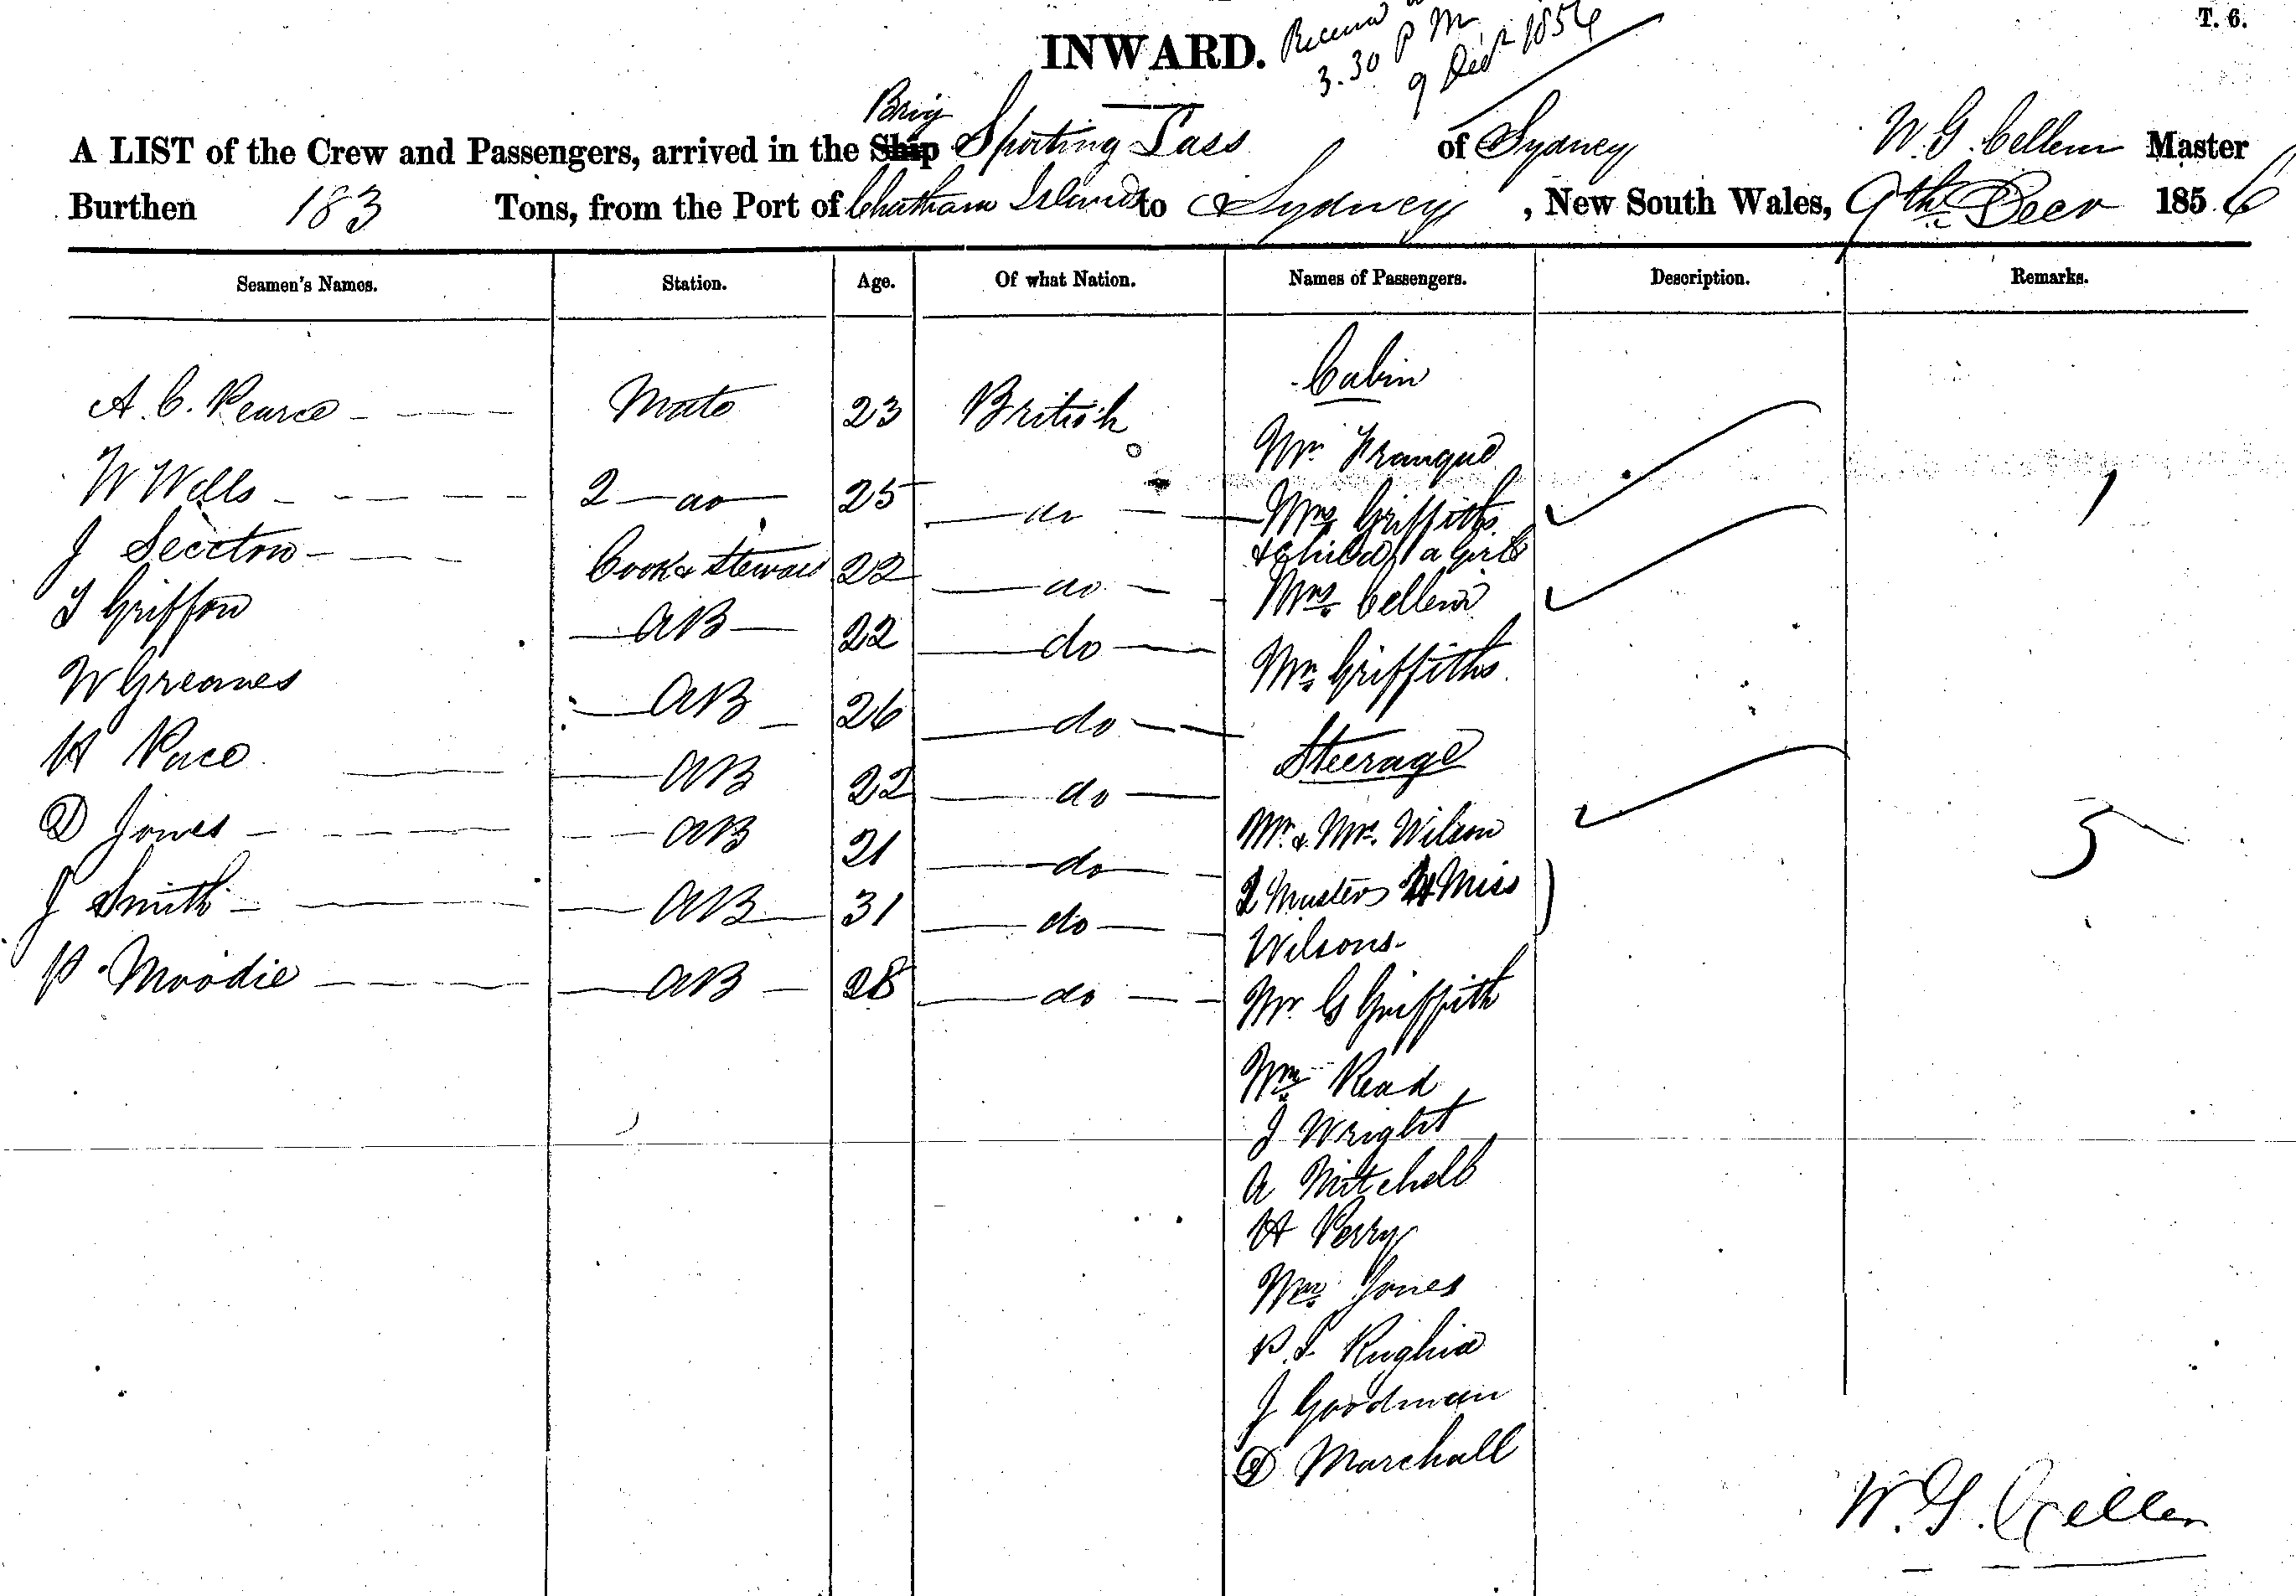 T. 6.
INWARD.
Received
3.30 P M
9 Decr 1856
Brig
A LIST of the Crew and Passengers, arrived in the Ship Sporting Lass of Sydney W. G. Cellem Master
Burthen 183 Tons, from the Port of Chatham Islands to Sydney, New South Wales, 9th Decr 1856
Seamen's Names. Station. Age. Of what Nation. Names of Passengers. Description. Remarks.
Cabin
A. C. Pearce Mate 23 British
Mr Franque
W Wells 2 do 25 do
Mrs Griffiths 1
& Child a Girl
J Seccton Cook & Steward 22 do
Mrs Cellem
T Griffon AB 22 do
Mr Griffiths
W Greaves AB 26 do
Steerage
H Pace AB 22 do
Mr & Mrs Wilson 5
D Jones AB 21 do
2 Masters 4 Miss
J Smith AB 31 do
Wilsons
P Moodie AB 28 do
Mr G Griffith
Wm Read
J Wright
A Mitchell
H Perry
Wm Jones
P. L.
J Goodman
D Marchall
W. G. Cellem